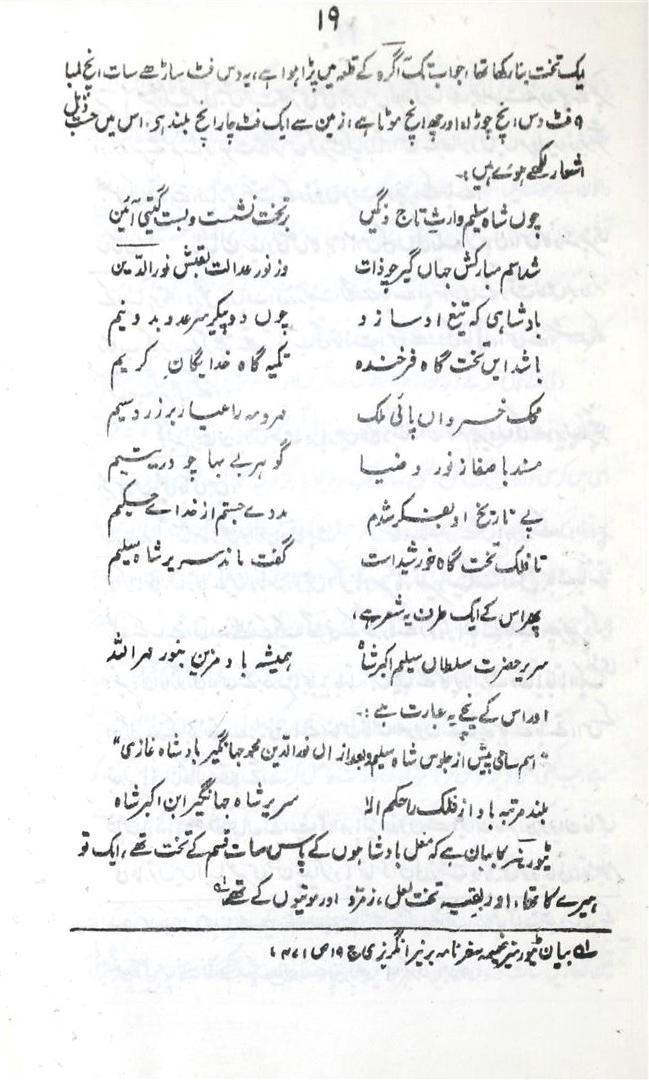 ۱۹
ایک تخت بنا رکھا تھا، جو اب تک آگرہ کے قلعہ میں پڑا ہوا ہے، یہ دس فٹ ساڑھے سات انچ لمبا
۹ فٹ دس انچ چوڑا، اور چھ انچ موٹا ہے، زمین سے ایک فٹ چار انچ بلند ہی، اس میں حسبِ ذیل
اشعار لکھے ہوئے ہیں:۔
چوں شاہ سلیم وارث تاج و نگیں بر تخت نشست و بست گیتی آئین
شد اسم مبارکش جہاں گیر چو ذات وز نور عدالت لقبش نور الدین
بادشاہی کہ تیغ او سازد چوں دو پیکر سر عدو بدو نیم
باشد ایں تخت گاہ فرخندہ تکیہ گاہ خدایگان کریم
خسرواں ملک مہر و مہ را عیار بر زر و سیم
مسند با صفا ز نور و ضیا گوہر بے بہا چو در یتیم
پے تاریخ او بفکر شدم مددے جستم از خدائے حکیم
تا فلک تخت گاہ خورشید است گفت ماند سریر شاہ سلیم
پھر اس کے ایک طرف یہ شعر ہے،
سریر حضرت سلطاں سلیم اکبر شاہ ہمیشہ باد مزین بنور مہر اللہ
اور اس کے نیچے یہ عبارت ہے:۔
"اسم سامی پیش از جلوس شاہ سلیم و بعد از آں نور الدین محمد جہانگیر بادشاہ غازی"
بلند مرتبہ باد از فلک بحکم الٰہ سریر شاہ جہانگیر ابن اکبر شاہ
ٹیورنیر کا بیان ہے کہ مغل بادشاہوں کے پاس سات قسم کے تخت تھے، ایک تو
ہیرے کا تھا، اور بقیہ تخت لعل، زمرد اور موتیوں کے تھے،
لہ بیان ٹیورنیر ضمیمہ سفر نامہ برنیر انگریزی ج ۱۹ ص ۴۷۱،